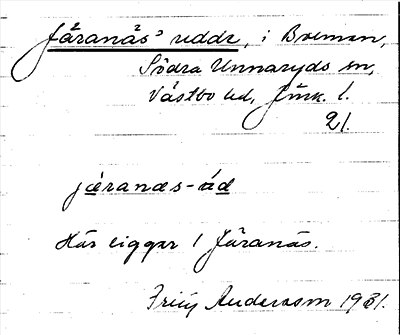 Järanäs' udde, i Bolmen,
Södra Unnaryds sn,
Västbo hd, Jönk. l.
21.
järanæs-úd
Här ligger 1 Järanäs.
Anderson 1931.